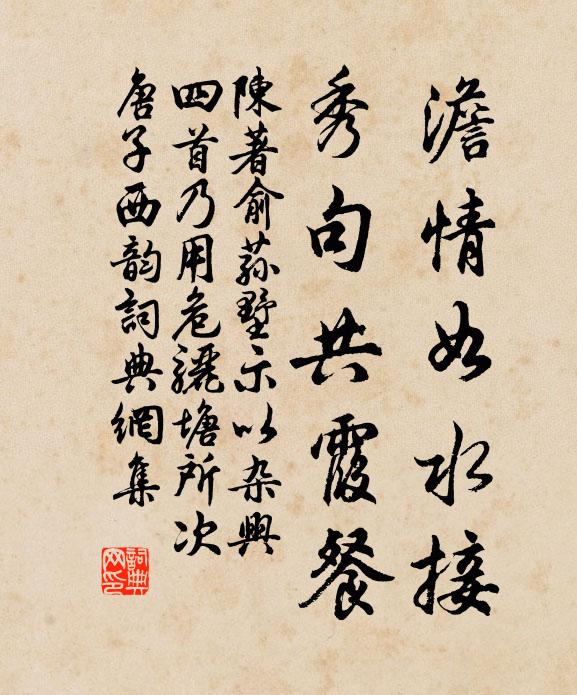 澹情如水接
秀句共霞餐
陳著俞菻墅示以杂興
四首乃用危驪塘所次
唐子西韵詞典網集
詞典网印